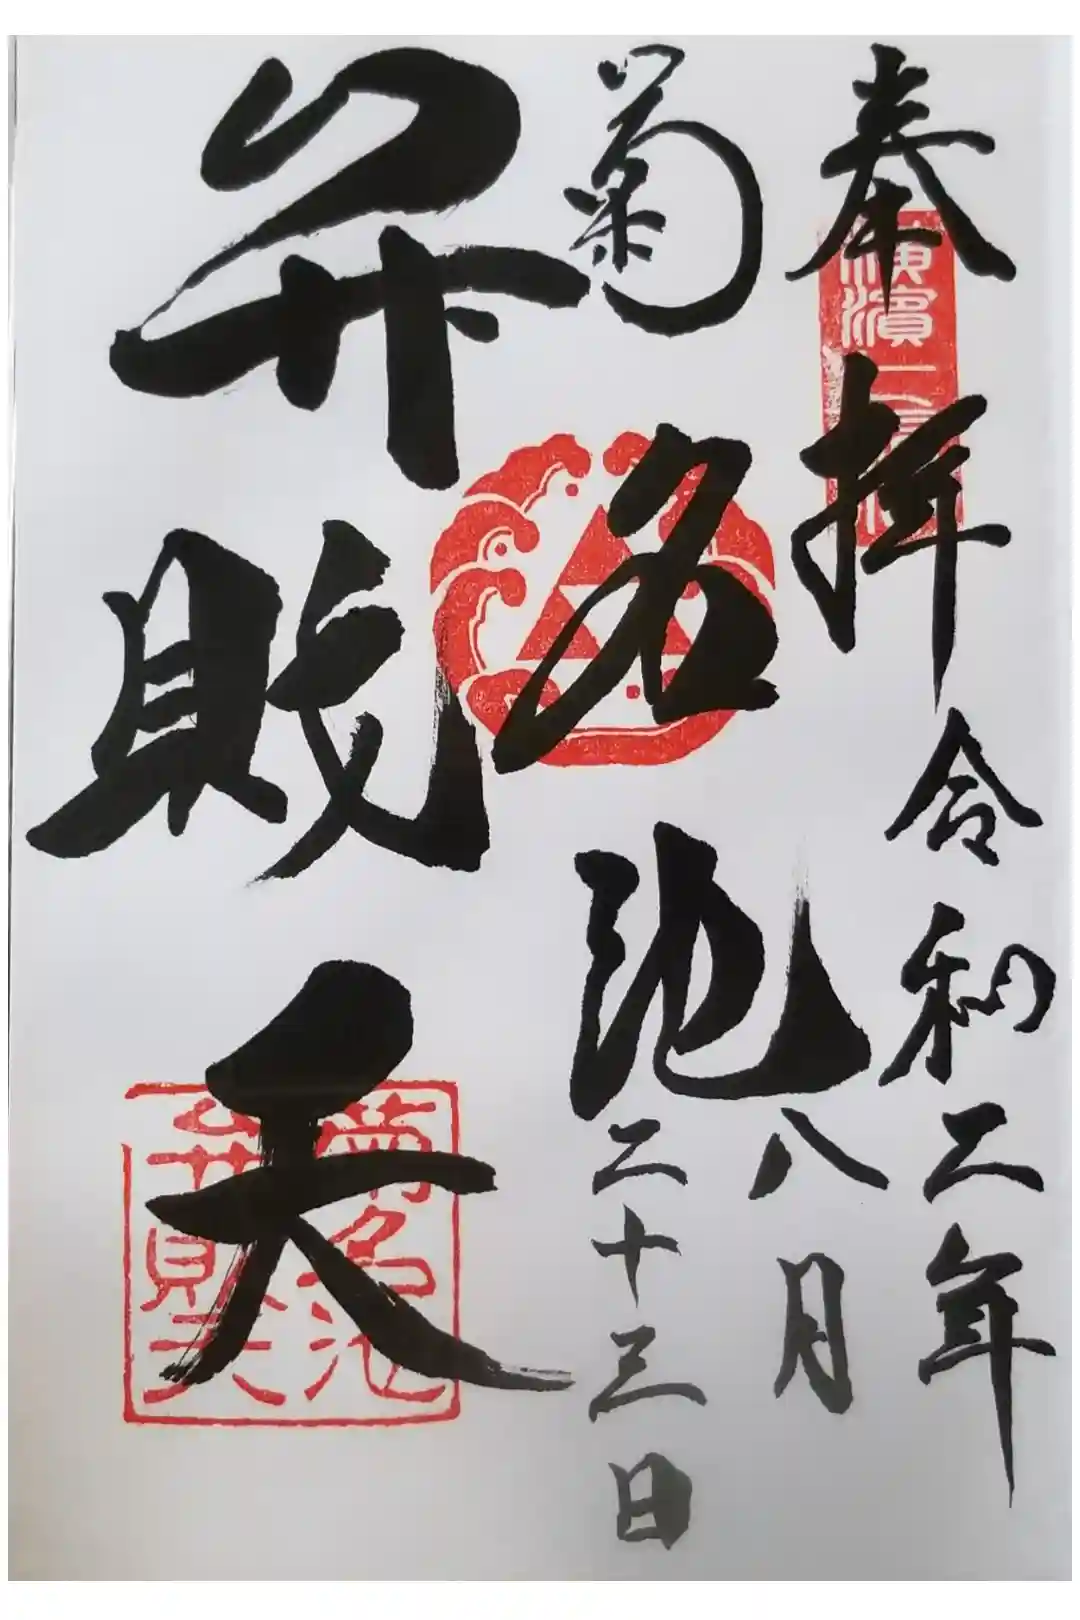 奉拝
令和二年
八月
二十三日
菊名池
弁財天
横濱
菊名池
弁財天